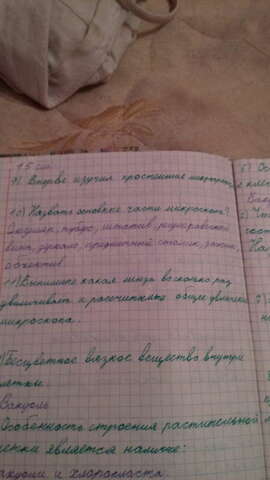 15
9) Впервые изучил простейшие микроорганизмы
10) Назвать основные части микроскопа?
Окуляр, тубус, штатив, регулировочный
винт, зеркало, предметный столик, зажим,
объектив.
11) Выпишите какая линза во сколько раз
увеличивает и рассчитайте общее увеличение
микроскопа.
Бесцветное вязкое вещество внутри
клетки.
Вакуоль
Особенность строения растительной
клетки является наличие:
вакуоли и хлоропласта.